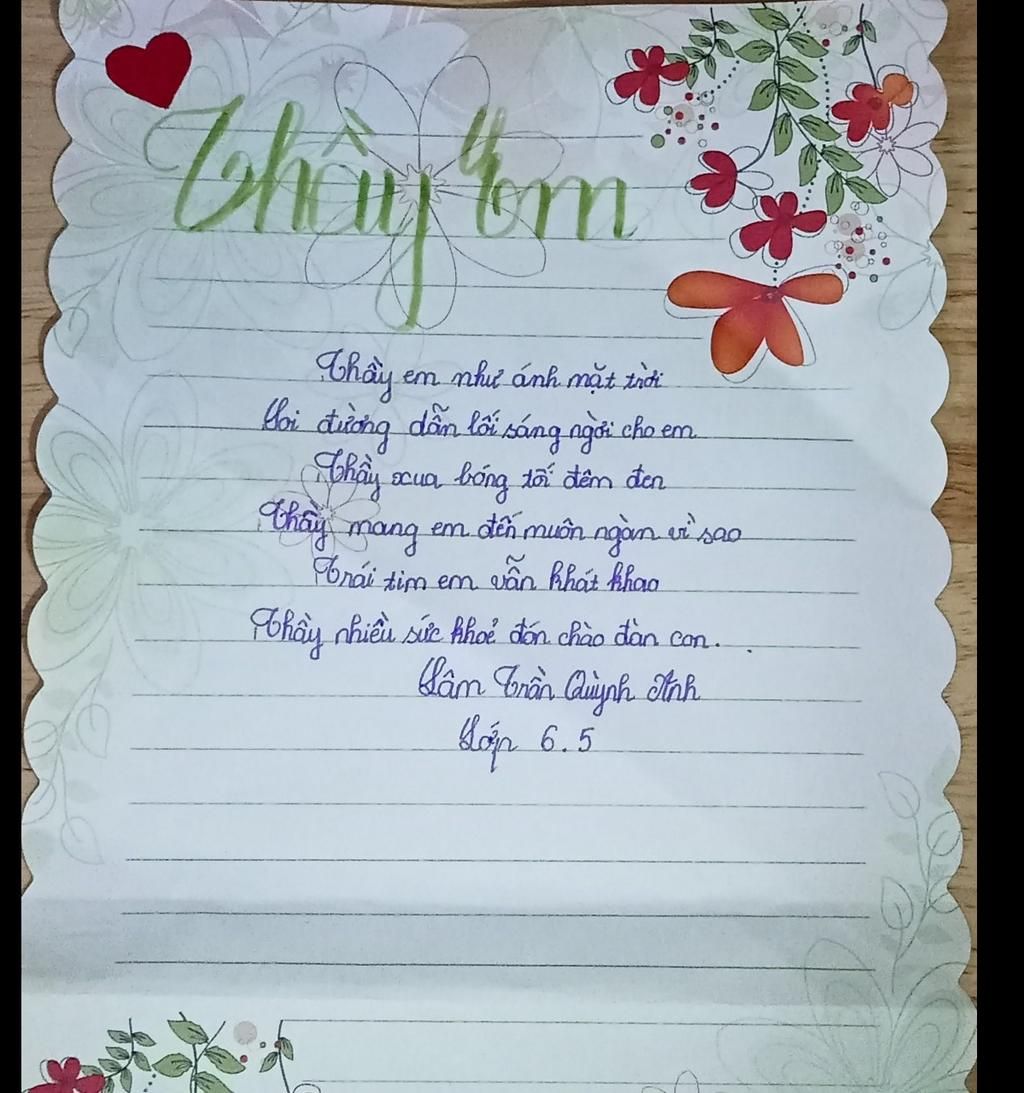 Thầy Em
Thầy em như ánh mặt trời
Soi đường dẫn lối sáng ngời cho em
Thầy xua bóng tối đêm đen
Thầy mang em đến muôn ngàn vì sao
Trái tim em vẫn khát khao
Thầy nhiều sức khoẻ đón chào đàn con.
Lâm Trần Quỳnh Anh
Lớp 6.5